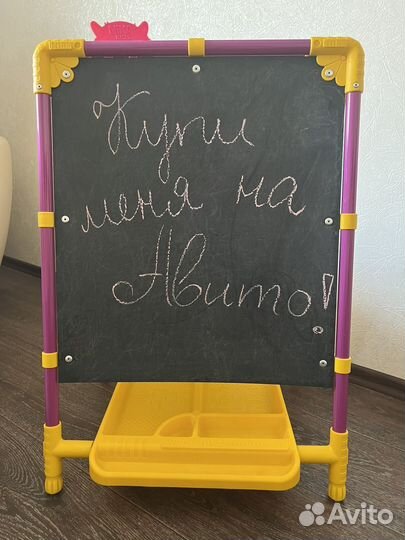 Купи
меня на
Авито!
Avito